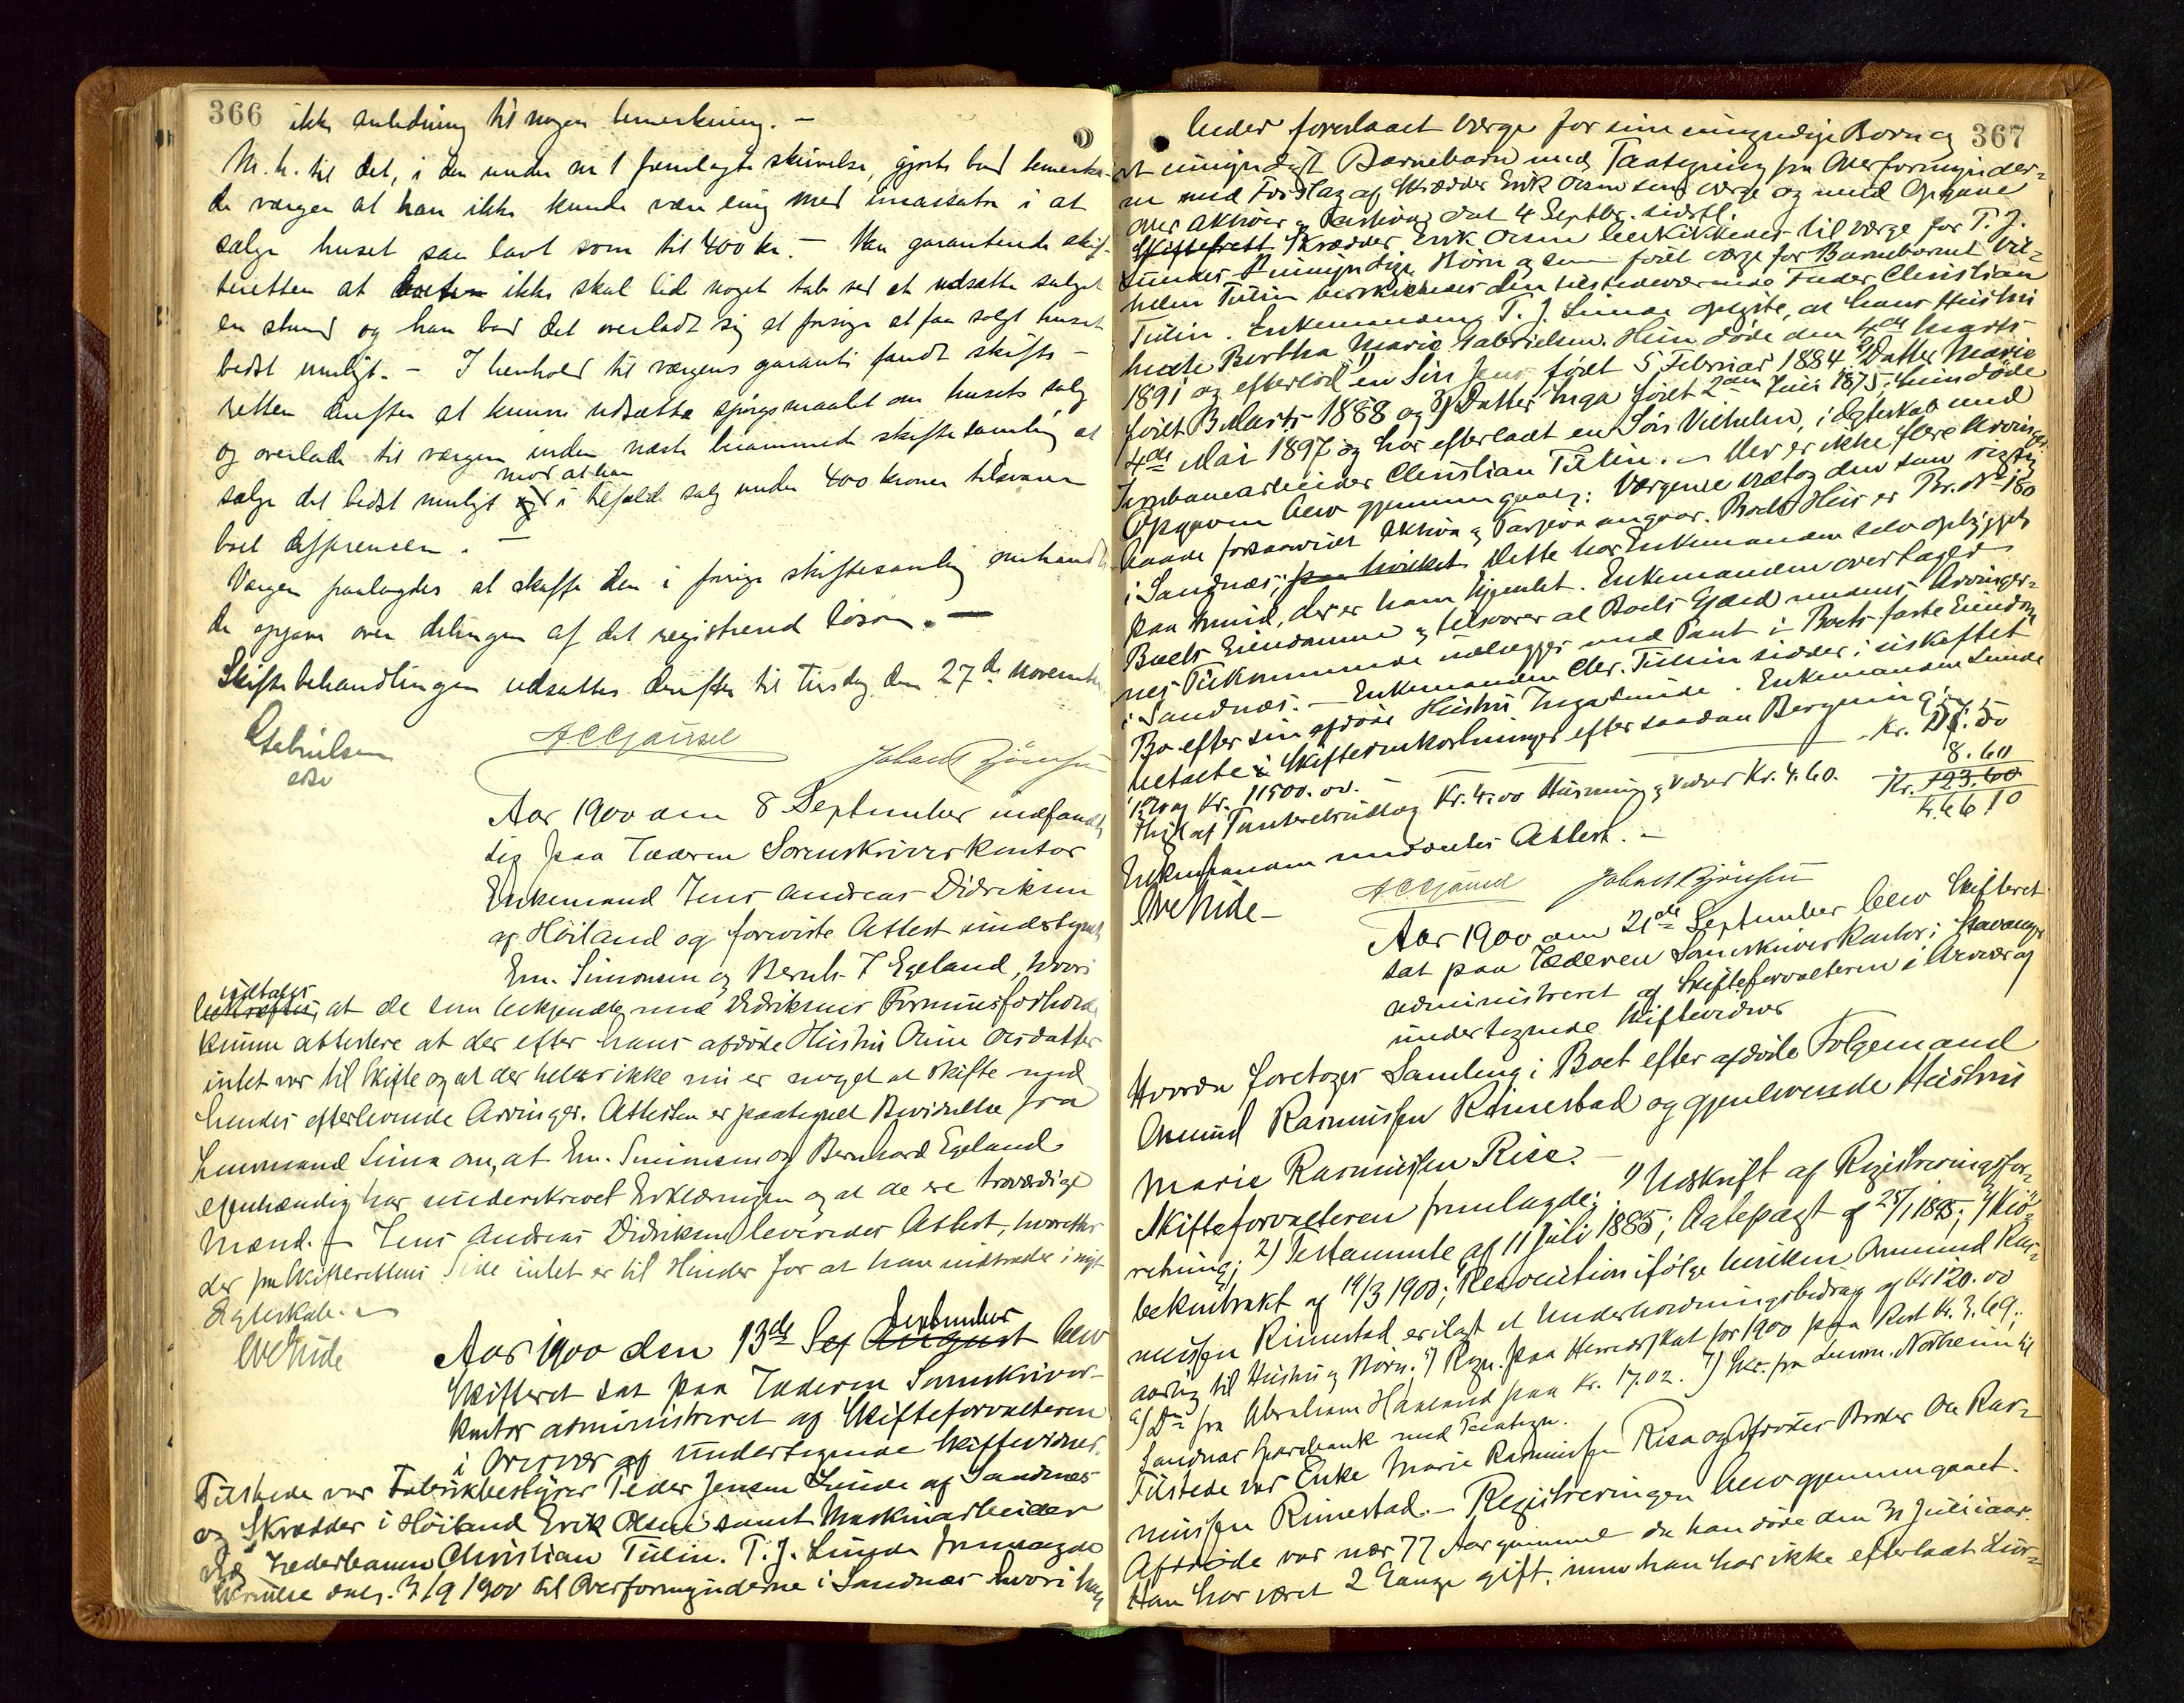 366 ikke anledning til nogen bemerkning. –
M. h. til det, i den under no 1 fremlagte skrivelse, gjorte bud bemerke-
de værgen at han ikke kunde være enig med incassator i at
sælge huset saa lavt som til 400 kr. – Han garanterede skif-
teretten at boet ikke skal lide noget tab ved at udsætte salget
en stund og han bad det overladt sig at forsøge at faa solgt huset
bedst muligt. – I henhold til værgens garanti fandt skifte-
retten derefter at kunne udsætte spørgsmaalet om husets salg
og overlade til værgen inden næste berammede skiftesamling at
mod at han
sælge det bedst muligt og i tilfælde salg under 400 kroner tilsvarer
boet differensen. –
Værgen paalagdes at skaffe den i forrige skiftesamling omhandle-
de opgave over delingen af det registrerede løsøre. –
Skiftebehandlingen udsattes derefter til tirsdag den 27de november
Gabrielsen
ACGjürsel
Jakob Bjørnsen
Aar 1900 den 8 September indfandt
sig paa Jæderen Sorenskriverkontor
Enkemand Jens Andreas Didriksen
af Höiland og foreviste Attest undertegnet
Em. Simonsen og Bernh. T Egeland, hvori
udtales
bekræftes, at de som bekjendte med Didriksens Formuesforholde
kunne attestere at der efter hans afdøde Hustru Anne Olsdatter
intet var til Skifte og at der heller ikke nu er noget at skifte med
hendes efterlevende Arvinger. Attesten er paategnet Bevidnelse fra
Lensmand Lima om, at Em. Simonsen og Bernhard Egeland
egenhændig har underskrevet Erklæringen og at de ere troværdige
Mænd. – Jens Andreas Didriksen leveredes Attest, hvorefter
der fra Skifterettens Side intet er til Hinder for at han indtræder i nyt
Ægteskab. –
Aar 1900 den 13de Sep August September blev
Skifteret sat paa Jæderen Sorenskriver-
kontor administreret af Skifteforvalteren
i Overvær af undertegnede Skiftevidner.
Tilstede var Fabrikbestyrer Peder Jensen Lunde af Sandnæs
og Skrædder i Höiland Erik Olsen samt Maskinarbeider
ved Jæderbanen Christian Tulin. T. J. Lunde fremlagde
Skrivelse dat. 3/9 1900 til Overformynderne i Sandnæs hvori han
367
beder foreslaaet Værge for sine umyndige Børn og
et umyndigt Barnebarn med Paategning fra Overformynder-
ne med Forslag af Skrædder Erik Olsen som Værge og med Opgave
over Aktiver og Passiver dat 4 Septbr. sidstl.
Skifteret Skrædder Erik Olsen beskikkedes til Værge for T. J.
Lundes 2 umyndige Børn og som født Værge for Barnebarnet Vil-
helm Tulin beskikkedes den tilstedeværende Fader Christian
Tulin. Enkemanden T. J. Lunde oplyste, at hans Hustru
hedte Bertha Marie Gabrielsen. Hun døde den 4de Marts
1891 og efterlod 1) en Søn Jens født 5 Februar 1884 2) Datter Marie
født 3 Marts 1888 og 3) Datter Inga født 2den Juli 1875. Hun døde
4de Mai 1897 og har efterladt en Søn Vilhelm, i Ægteskab med
Jernbanearbeider Christian Tulin. – Der er ikke flere Arvinger
Opgaven blev gjennemgaaet: Værgerne vedtog den som rigtig
baade forsaavidt Aktiva og Passiva angaar. Boets Hus er Br. No 180
i Sandnæs; paa hvilket Dette har Enkemanden selv opbygget
paa Grund, der er ham hjemlet. Enkemanden overtager
Boets Eiendomme og tilsvarer al Boets Gjæld medens Arvinger-
nes Tilkommende udlægges med Pant i Boets faste Eiendom
i Sandnæs. – Enkemanden Chr. Tulin sidder i uskiftet
Bo efter sin afdøde Hustru Inga Lunde. Enkemanden Lunde
betalte i Skifteomkostninger efter saadan Beregning:
1% af Kr. 11500.00. – Kr. 115.00
Thgl. af Panteretsudlæg Kr. 4.00 Husning og Vidner Kr. 4.60. 8.60
Kr. 123.60
Enkemanden meddeltes Attest. –
ACGjürsel Jakob Bjørnsen
Aar 1900 den 21de September blev Skifteret
sat paa Jæderen Sorenskriverkontor i Stavanger
administreret af Skifteforvalteren i Overvær af
undertegnede Skiftevidner
Hvorda foretoges Samling i Boet efter afdøde Følgemand
Omund Rasmussen Rimestad og gjenlevende Hustru
Marie Rasmussen Rise. –
Skifteforvalteren fremlagde; 1) Udskrift af Registreringsfor-
retning; 2) Testamente af 11 Juli 1885; Ægtepagt af 25/1 1895; 3) Kjö-
bekontrakt af 19/3 1900; Resolution ifølge hvilken Ommund Ras-
mussen Rimestad er ilagt et Underholdningsbidrag af Kr 120.00
aarlig til Hustru og Børn. 5) Regn. paa Herredsskat for 1900 paa Rest Kr. 3.69;
6) Do fra Abraham Haaland paa Kr. 17.02. 7) Skr. fra Lensm. Nærheim til
Sandnæs Sparebank med Paategn.
Tilstede var Enke Marie Rasmussen Risa og Afdødes Broder Ole Ras-
mussen Rimestad. – Registreringen blev gjennemgaaet.
Afdøde var nær 77 Aar gammel da han døde den 31 Juli iaar.
Han har været 2 Gange gift, men han har ikke efterladt Livs-